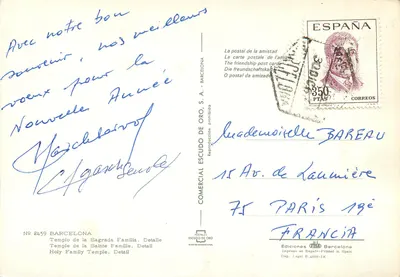 Avec notre bon
souvenir, nos meilleurs
voeux pour la
Nouvelle Année
BARCELONA
Templo de la Sagrada Familia. Detalle
Temple de la Sainte Famille. Détail
Holy Family Temple. Detail
COMERCIAL ESCUDO DE ORO, S. A. - BARCELONA
La postal de la amistad
La carte postale de l'amitié
The friendship post card
Die freundschafts
O postal da amizade
ESPAÑA
350
PTAS
CORREOS
Mademoiselle BAREAU
15 Av. de Laumière
75 PARIS 19è
FRANCIA
Ediciones Barcelona